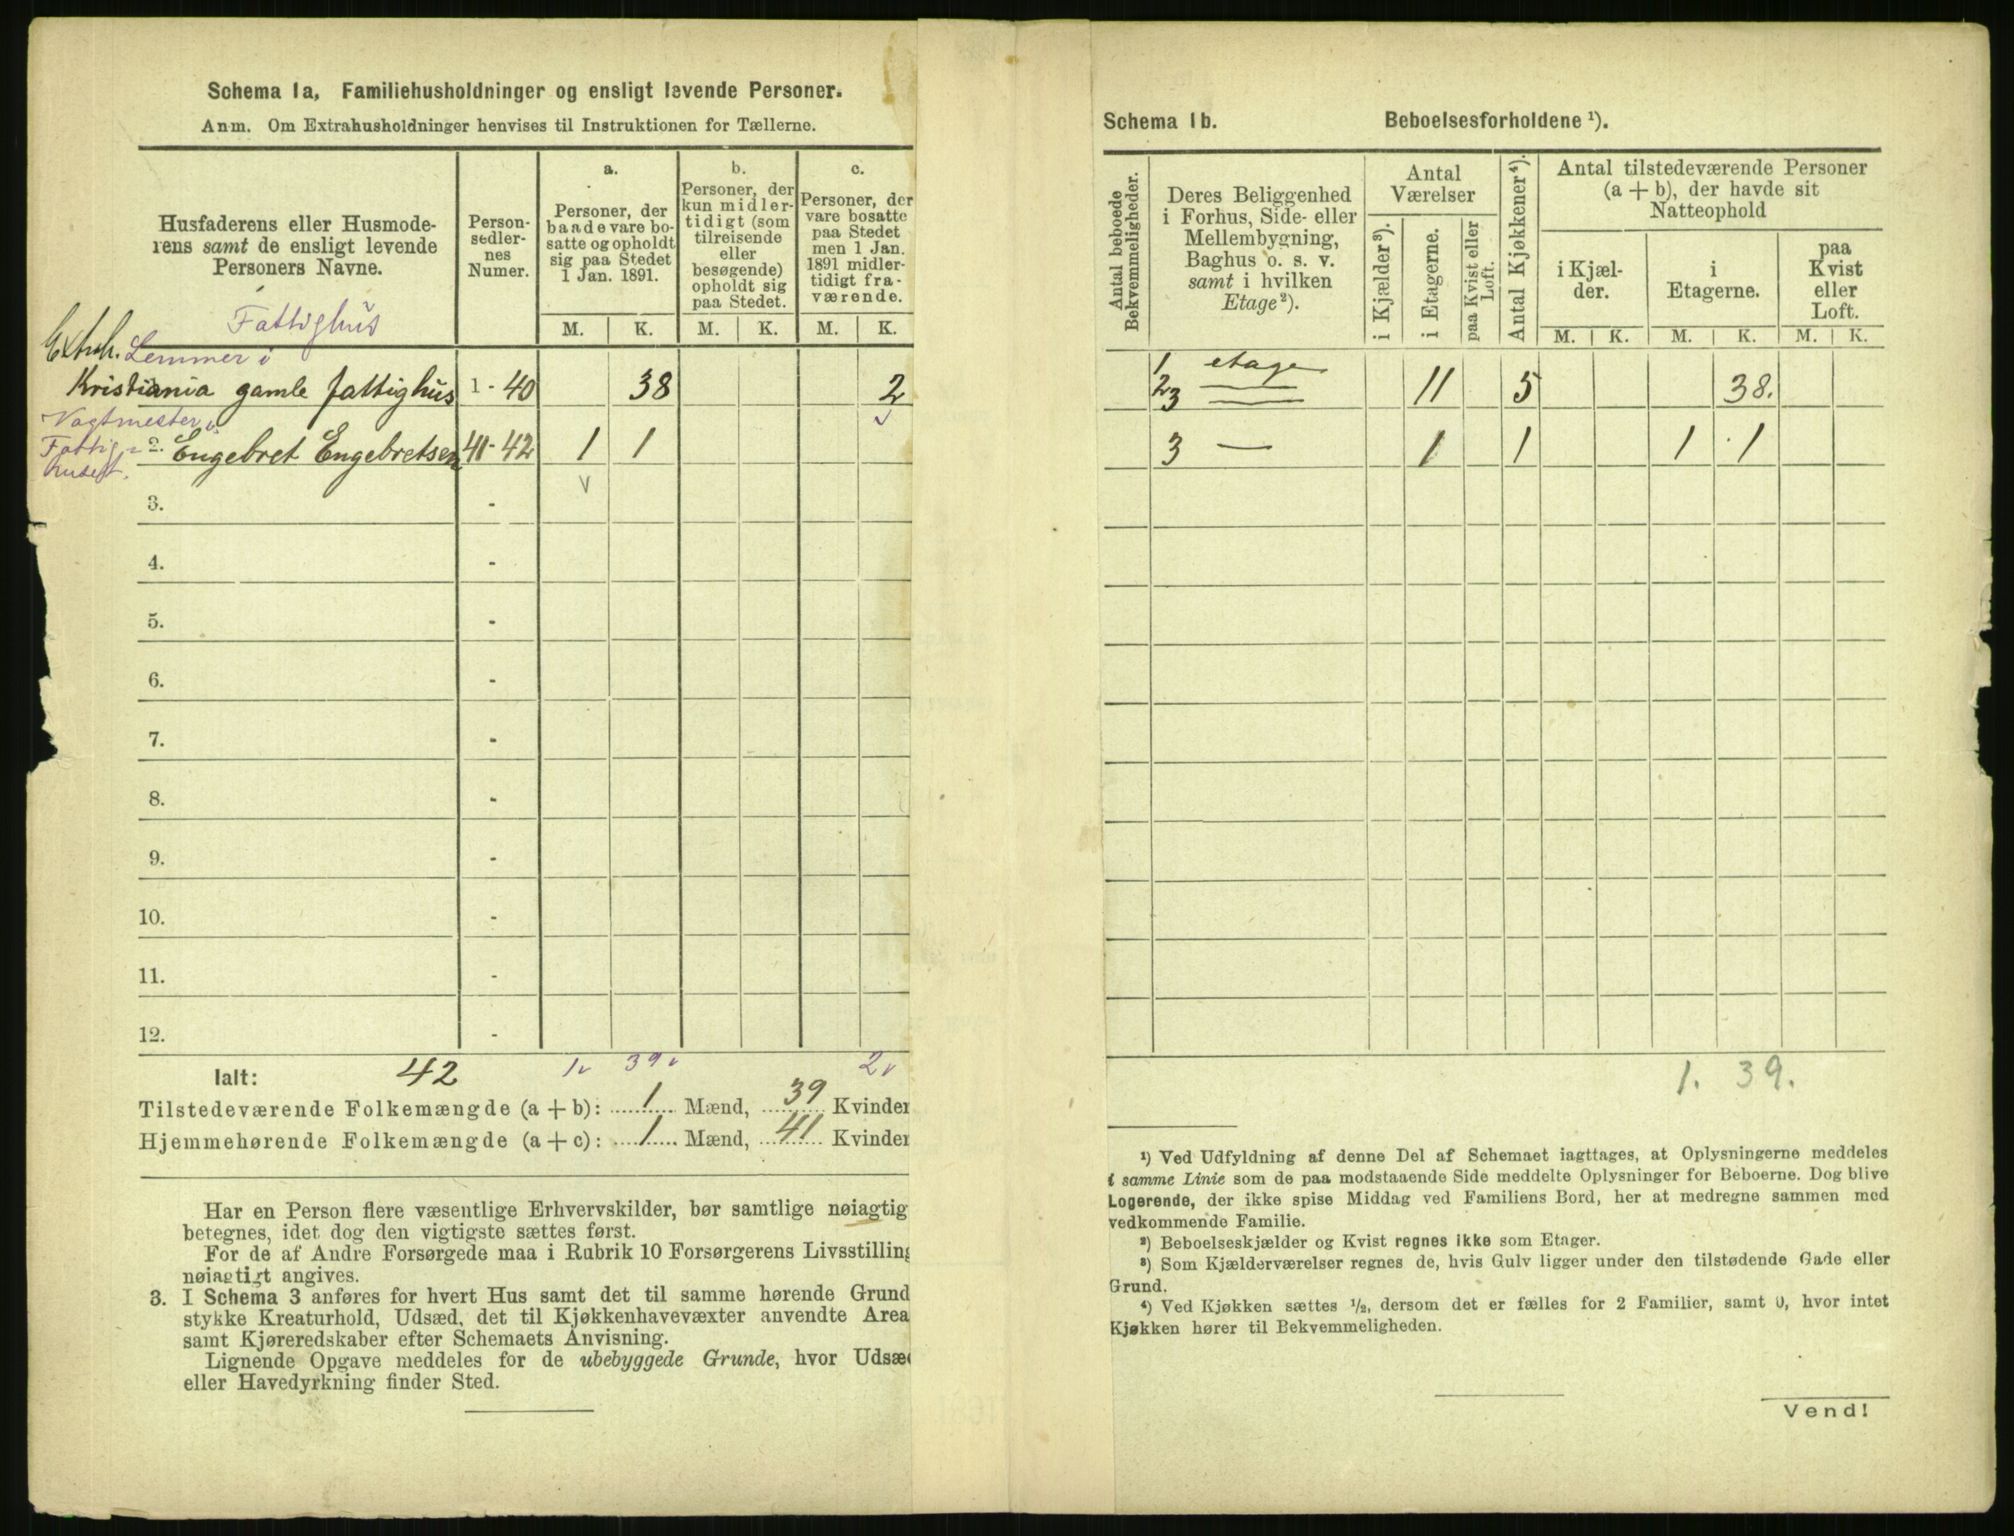 Schema 1a, Familiehusholdninger og ensligt levende Personer.
Anm. Om Extrahusholdninger henvises til Instruktionen for Tællerne.
Husfaderens eller Husmode-
rens samt de ensligt levende
Personers Navne.
Person-
sedler-
nes
Numer.
a.
Personer, der
baade vare bo-
satte og opholdt
sig paa Stedet
1 Jan. 1891.
b.
Personer, der
kun midler-
tidigt (som
tilreisende
eller
besøgende)
opholdt sig
paa Stedet.
c.
Personer, der
vare bosatte
paa Stedet
men 1 Jan.
1891 midler-
tidigt fra-
værende.
M. K. M. K. M. K.
Fattighus
Extrah. Lemmer i
Kristiania gamle fattighus 1 - 40 38 2
Vagtmester i
Fattig- 2. Engebret Engebretsen 41 - 42 1 1
huset.
3. -
4. -
5. -
6. -
7. -
8. -
9. -
10. -
11. -
12. -
Ialt: 42 1 39 2
Tilstedeværende Folkemængde (a + b): 1 Mænd, 39 Kvinder
Hjemmehørende Folkemængde (a + c): 1 Mænd, 41 Kvinder
Har en Person flere væsentlige Erhvervskilder, bør samtlige nøiagtig
betegnes, idet dog den vigtigste sættes først.
For de af Andre Forsørgede maa i Rubrik 10 Forsørgerens Livsstilling
nøiagtigt angives.
3. I Schema 3 anføres for hvert Hus samt det til samme hørende Grund
stykke Kreaturhold, Udsæd, det til Kjøkkenhavevæxter anvendte Area
samt Kjøreredskaber efter Schemaets Anvisning.
Lignende Opgave meddeles for de ubebyggede Grunde, hvor Udsæd
eller Havedyrkning finder Sted.
Schema 1b. Beboelsesforholdene ¹).
Antal beboede
Bekvemmeligheder.
Deres Beliggenhed
i Forhus, Side- eller
Mellembygning,
Baghus o. s. v.
samt i hvilken
Etage²).
Antal
Værelser
i Kjælder³).
i Etagerne.
paa Kvist eller
Loft.
Antal Kjøkkener⁴).
Antal tilstedeværende Personer
(a + b), der havde sit
Natteophold
i Kjæl-
der.
i
Etagerne.
paa
Kvist
eller
Loft.
M. K. M. K. M. K.
1 etage
2 — 11 5 38.
3 —
3 — 1 1 1 1
1. 39.
¹) Ved Udfyldning af denne Del af Schemaet iagttages, at Oplysningerne meddeles
i samme Linie som de paa modstaaende Side meddelte Oplysninger for Beboerne. Dog blive
Logerende, der ikke spise Middag ved Familiens Bord, her at medregne sammen med
vedkommende Familie.
²) Beboelseskjælder og Kvist regnes ikke som Etager.
³) Som Kjælderværelser regnes de, hvis Gulv ligger under den tilstødende Gade eller
Grund.
⁴) Ved Kjøkken sættes ½, dersom det er fælles for 2 Familier, samt 0, hvor intet
Kjøkken hører til Bekvemmeligheden.
Vend!